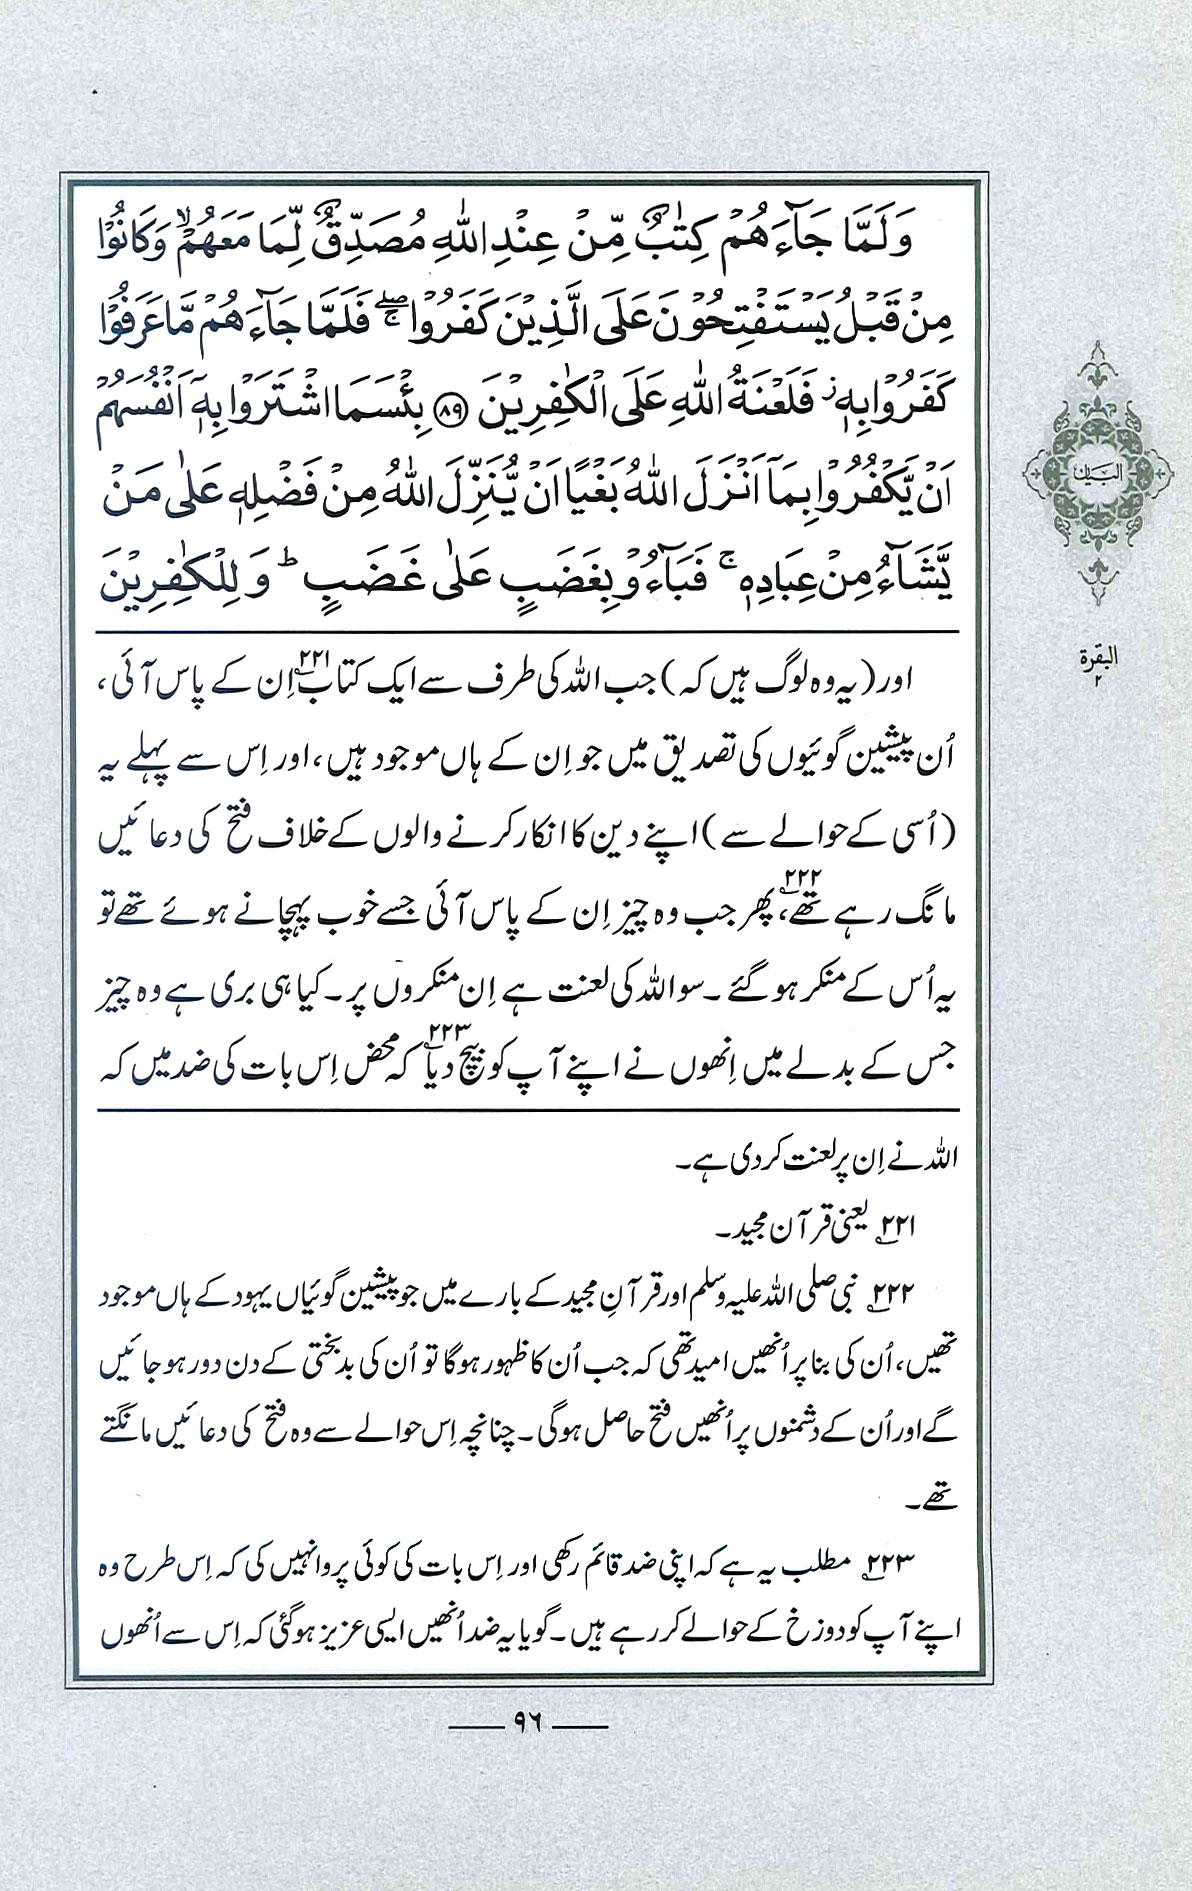 وَلَمَّا جَآءَهُمْ كِتٰبٌ مِّنْ عِنْدِ اللّٰهِ مُصَدِّقٌ لِّمَا مَعَهُمْ ۙ وَكَانُوْا
مِنْ قَبْلُ يَسْتَفْتِحُوْنَ عَلَى الَّذِيْنَ كَفَرُوْا ۚۖ فَلَمَّا جَآءَهُمْ مَّا عَرَفُوْا
كَفَرُوْا بِهٖ ز فَلَعْنَةُ اللّٰهِ عَلَى الْكٰفِرِيْنَ ﴿٨٩﴾ بِئْسَمَا اشْتَرَوْا بِهٖٓ اَنْفُسَهُمْ
اَنْ يَّكْفُرُوْا بِمَآ اَنْزَلَ اللّٰهُ بَغْيًا اَنْ يُّنَزِّلَ اللّٰهُ مِنْ فَضْلِهٖ عَلٰى مَنْ
يَّشَآءُ مِنْ عِبَادِهٖ ۚ فَبَآءُوْ بِغَضَبٍ عَلٰى غَضَبٍ ؕ وَلِلْكٰفِرِيْنَ
اور (یہ وہ لوگ ہیں کہ) جب اللہ کی طرف سے ایک کتاب۲۲۱ اِن کے پاس آئی،
اُن پیشین گوئیوں کی تصدیق میں جو اِن کے ہاں موجود ہیں، اور اِس سے پہلے یہ
(اُسی کے حوالے سے) اپنے دین کا انکار کرنے والوں کے خلاف فتح کی دعائیں
مانگ رہے تھے۲۲۲، پھر جب وہ چیز اِن کے پاس آئی جسے خوب پہچانے ہوئے تھے تو
یہ اُس کے منکر ہو گئے۔ سو اللہ کی لعنت ہے اِن منکروں پر۔ کیا ہی بری ہے وہ چیز
جس کے بدلے میں اِنھوں نے اپنے آپ کو بیچ دیا۲۲۳ کہ محض اِس بات کی ضد میں کہ
اللہ نے اِن پر لعنت کر دی ہے۔
۲۲۱ یعنی قرآن مجید۔
۲۲۲ نبی صلی اللہ علیہ وسلم اور قرآنِ مجید کے بارے میں جو پیشین گوئیاں یہود کے ہاں موجود
تھیں، اُن کی بنا پر اُنھیں امید تھی کہ جب اُن کا ظہور ہوگا تو اُن کی بدبختی کے دن دور ہو جائیں
گے اور اُن کے دشمنوں پر اُنھیں فتح حاصل ہوگی۔ چنانچہ اِس حوالے سے وہ فتح کی دعائیں مانگتے
تھے۔
۲۲۳ مطلب یہ ہے کہ اپنی ضد قائم رکھی اور اِس بات کی کوئی پروا نہیں کی کہ اِس طرح وہ
اپنے آپ کو دوزخ کے حوالے کر رہے ہیں۔ گویا یہ ضد اُنھیں ایسی عزیز ہوگئی کہ اِس سے اُنھوں
۹۶
البیان
البقرۃ
۲